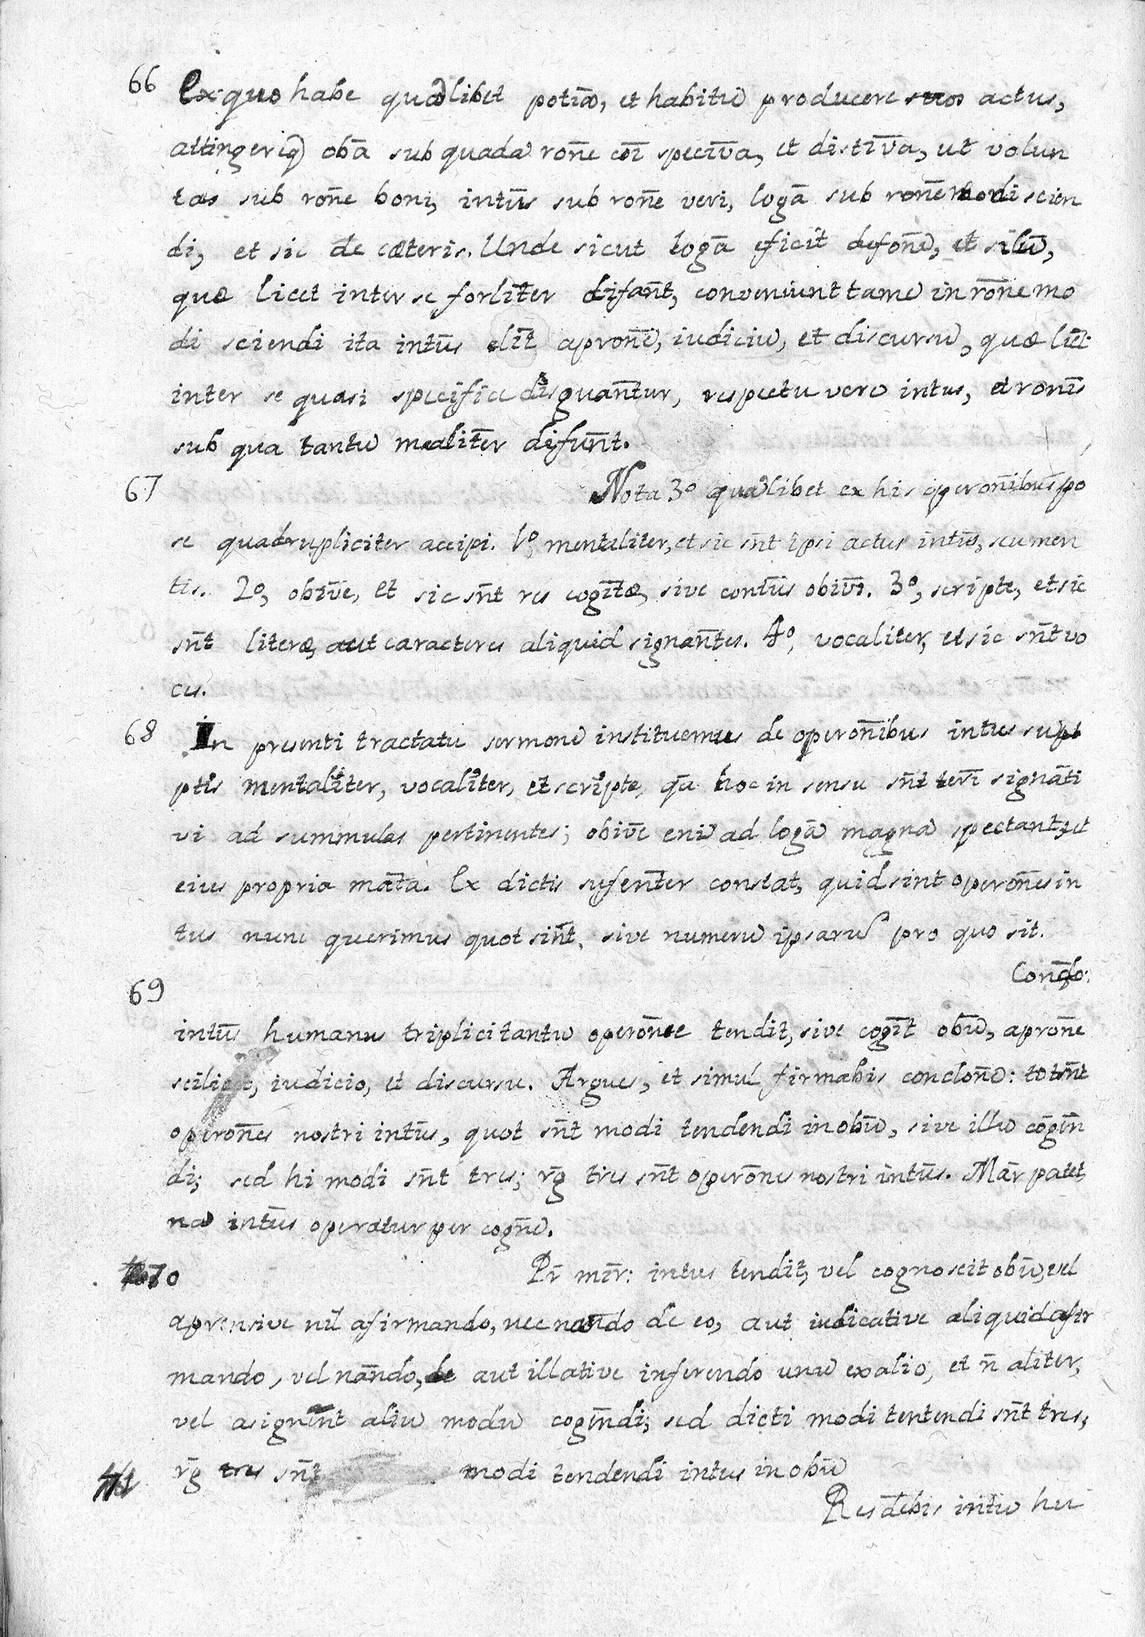 66 Ex quo habe quālibet potiā, et habitū producere suos actus,
attingeriq obā sub quadā rone coī specīva, et distīva, ut volun
tas sub rone boni, intūs sub rone veri, logā sub rone modi scien
di, et sic de cæteris. Unde sicut logā eficit defonē, et silū,
quæ licet inter se forliter difant, conveniunt tamē in rone mo
di sciendi ita intūs elīt apronē, iudiciū, et discursū, quæ licēt
inter se quasi specifice disguantur, respectu vero intus, et ronis
sub qua tantū mealiter difunt.
67 Nota 3º quālibet ex his operonibus po
se quadrupliciter accipi. 1º, mentaliter, et sic snt ipsi actus intūs, seu men
tis. 2º, obivē, et sic snt res cognitæ, sive contūs obivi. 3º, scripte, et sic
snt literæ, aut caracteres aliquid signantes. 4º, vocaliter, et sic snt vo
ces.
68 In presenti tractatu sermonē instituemus de operonibus intus supt
ptis mentaliter, vocaliter, et scripte, qā hoc in sensu snt teri signāti
vi ad summulas pertinentes; obivē enī ad logā magnā spectant, et
eius propria māta. Ex dictis sufenter constat, quid sint operones in
tus nunc querimus quot sint, sive numerū ipsarū pro quo sit.
Conclo:
69
intūs humanus triplici tantū operone tendit, sive cognīt obū, aprone
scilicet, iudicio, et discursu. Argues, et simul firmabis conclonē: tot snt
operones nostri intūs, quot snt modi tendendi in obū, sive illū cōgen
di; sed hi modi snt tres; rg tres snt operones nostri intūs. Mār patet
nā intūs operatur per cogne.
70 Pr mīr: intus tendit, vel cognoscit obū, vel
aprensive nil afirmando, nec nando de eo, aut iudicative aliquid afir
mando, vel nando, aut illative inferendo unū ex alio, et n aliter,
vel asignent aliū modū cogendi; sed dicti modi tentendi snt tres,
rg tres snt modi tendendi intus in obū
Resdebis intū hu